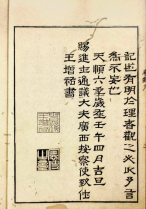 記此有明於理者觀之必以予言
為不妄也
天順六年歲在壬午四月吉旦
賜進士通議大夫廣西按察使致仕
王增祐書